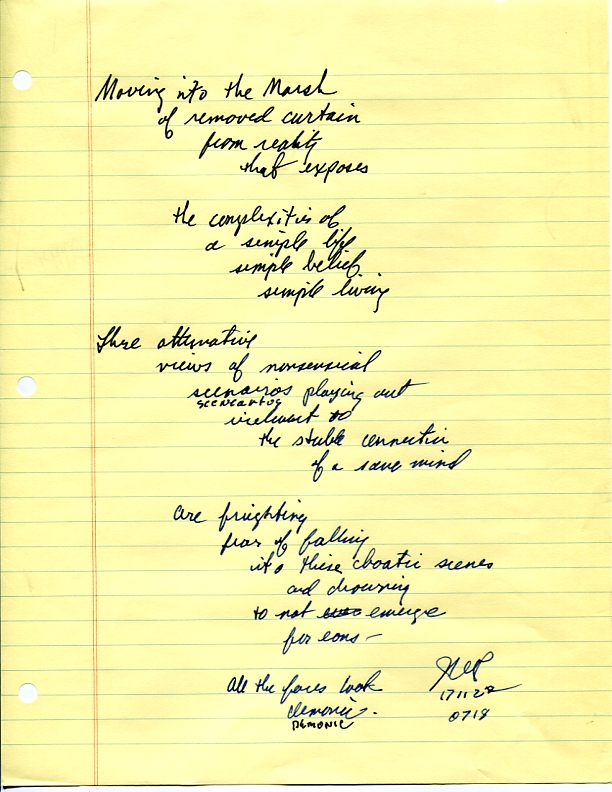 Moving into the Marsh
of removed curtain
from reality
that exposes
the complexities of
a simple life
simple belief
simple living
these alternative
views of nonsensical
scenairos playing out
SCENEARIOS
irrelevant to
the stable connection
of a sane mind
are frighting
fear of falling
into these choatic scenes
and drowning
to not emerge
for eons -
All the faces look
demonic.
DEMONIC
171122
0718